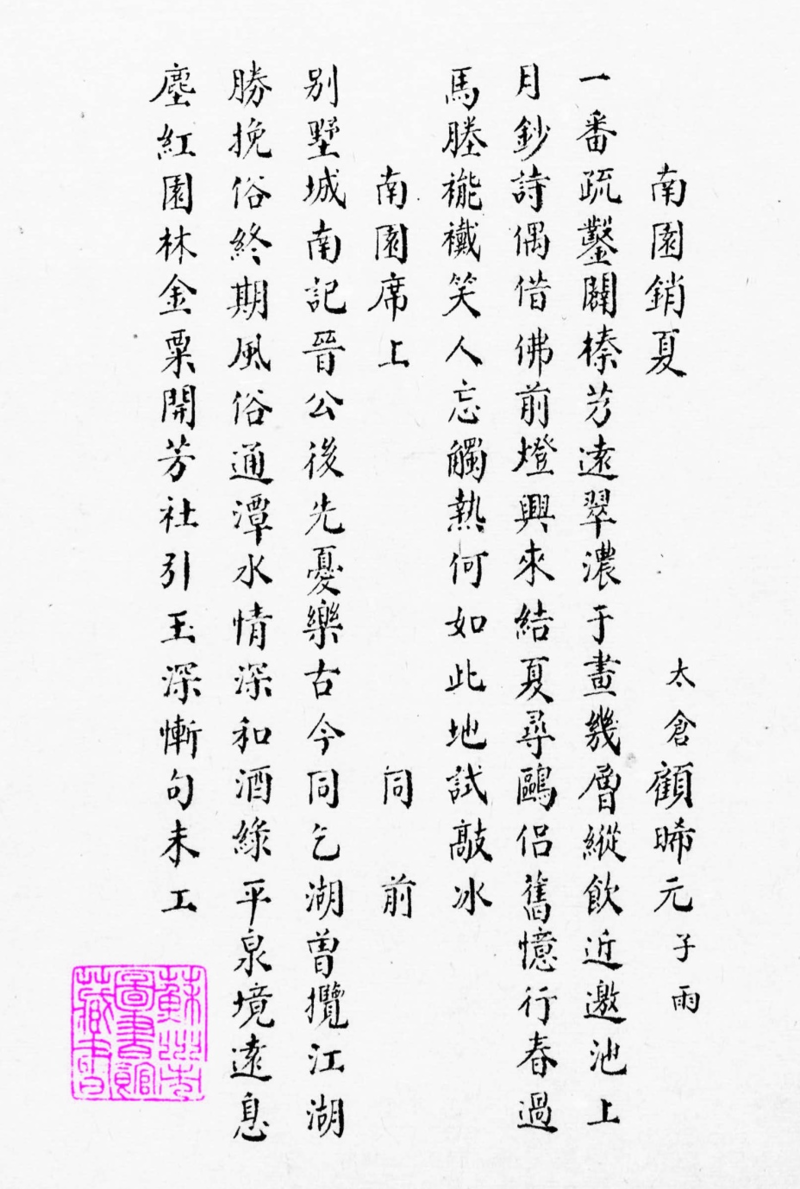 南園銷夏
太倉顧晞元子雨
一番疏鑿闢榛芳遠翠濃于畫幾層縱飲近邀池上
月鈔詩偶借佛前燈興來結夏尋鷗侶舊憶行春過
馬塍褦襶笑人忘觸熱何如此地試敲冰
南園席上
同前
別墅城南記晉公後先憂樂古今同乞湖曾攬江湖
勝挽俗終期風俗通潭水情深和酒綠平泉境遠息
塵紅園林金粟開芳社引玉深慚句未工
蘇州市
圖書館
藏書